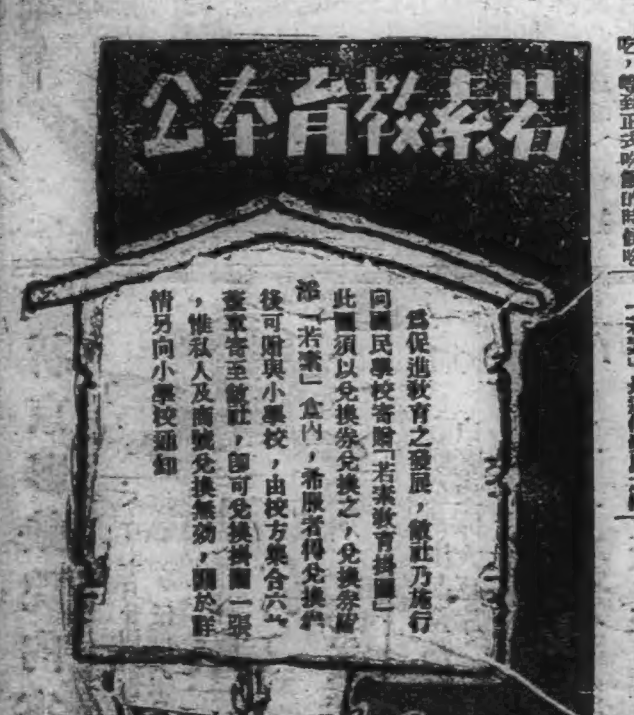 若素教育奉公
為促進教育之發展，敝社乃施行
向國民學校寄贈「若素教育掛圖」
此圖須以兌換券兌換之，兌換券附
於「若素」盒內，希顧者得兌換券
後可贈與小學校，由校方集合六十
張寄至敝社，即可兌換掛圖一張
，惟私人及商號兌換無効，關於詳
情另向小學校通知
吃，等到正式吃飯的時候吃